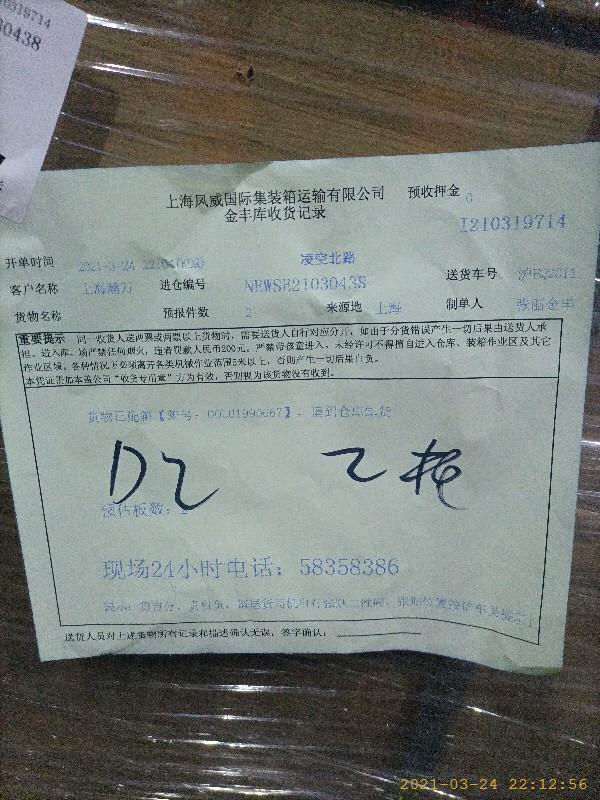 10319714
30438
上海风威国际集装箱运输有限公司 预收押金 0
金丰库收货记录
I210319714
凌空北路
开单时间 2021-03-24 22:04(KDR)
客户名称 上海瀚万 进仓编号 NEWSE21030438 送货车号
货物名称 预报件数 2 来源地 上海 制单人
重要提示 同一收货人送两票或两票以上货物时，需要送货人自行对应分开，如由于分货错误产生一切后果由送货人承
担。进入库、场严禁任何烟火，违者罚款人民币200元。严禁带孩童进入，未经许可不得擅自进入仓库、装箱作业区及其它
作业区域。各种情况下必须离开各类机械作业范围5米以上，否则产生一切后果自负。
本凭证需加本盖公司“收货专用章”方为有效，否则视为该货物没有收到。
D2 2托
预估板数：2
现场24小时电话：58358386
送货人员对上述货物所有记录和描述确认无误，签字确认：
2021-03-24 22:12:56